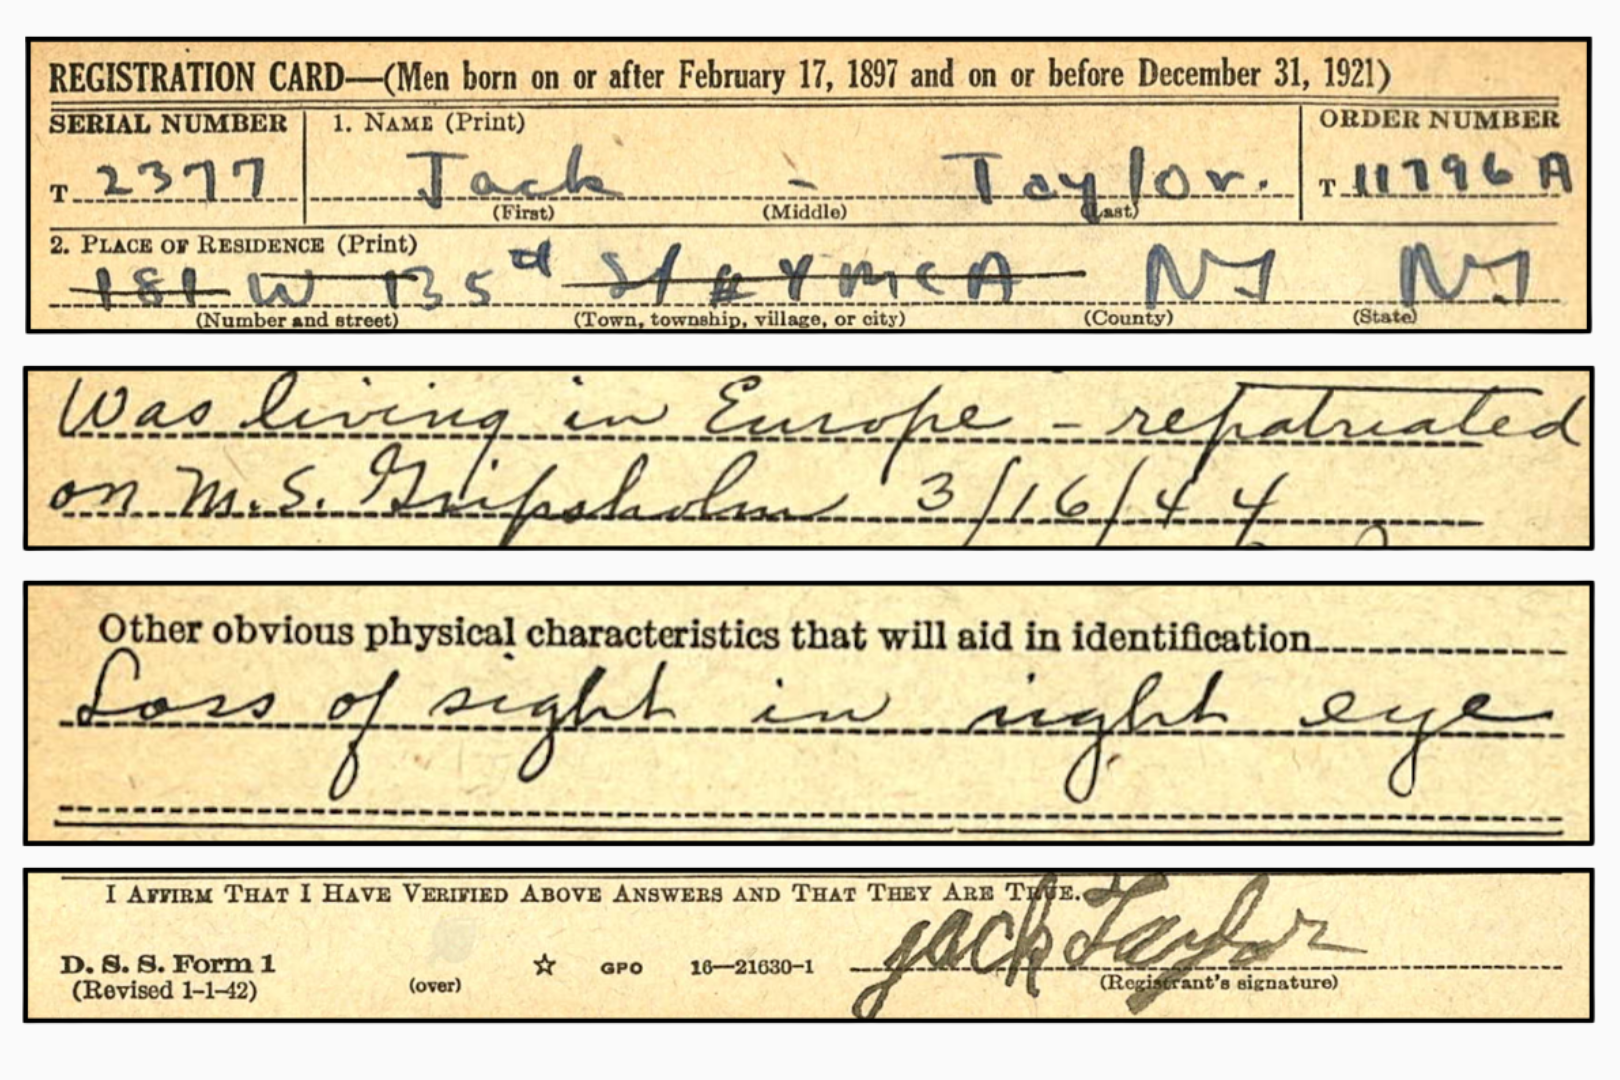 REGISTRATION CARD—(Men born on or after February 17, 1897 and on or before December 31, 1921)
SERIAL NUMBER 1. NAME (Print) ORDER NUMBER
T 2377 Jack - Taylor. T 11796 A
(First) (Middle) (Last)
2. PLACE OF RESIDENCE (Print)
181 W 135 St YMCA NY NY
(Number and street) (Town, township, village, or city) (County) (State)
Was living in Europe - repatriated
on M.S. Gripsholm 3/16/44
Other obvious physical characteristics that will aid in identification
Loss of sight in right eye
I AFFIRM THAT I HAVE VERIFIED ABOVE ANSWERS AND THAT THEY ARE TRUE.
Jack Taylor
D. S. S. Form 1
(Revised 1-1-42) (over) ☆ GPO 16—21630-1 (Registrant's signature)